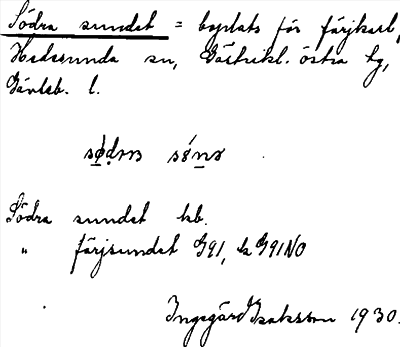 Södra sundet = boplats för färjkarl,
Hedesunda sn, Gästrikl. östra tg,
Gävleb. l.
Södra sundet hb.
" färjsundet G91, k G91NO
Ingegärd Isaksson 1930.